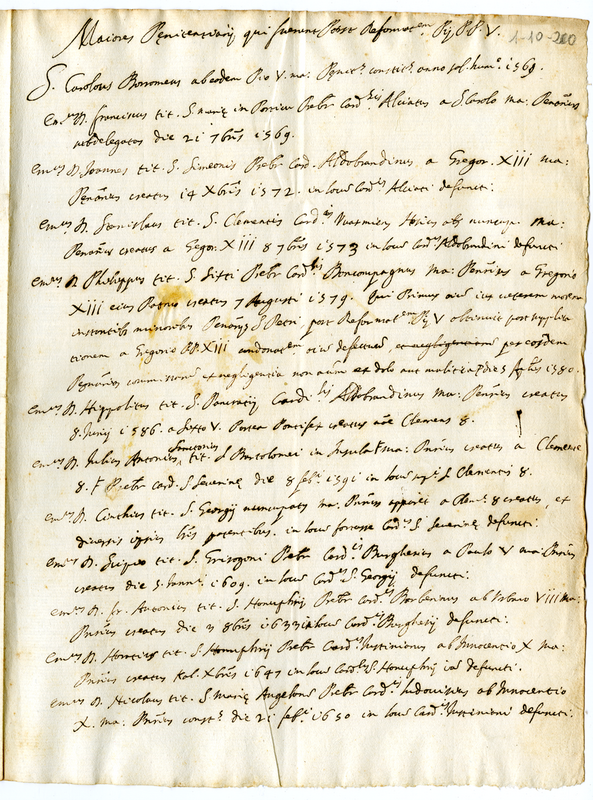 Maiores Penitentiarij qui fuerunt Post Reformat.em Pij PP. V.
1-10-200
S. Carolus Borromeus ab eodem Pio V. ma: Penit.s constit.s anno sal. hum.e 1569.
Em.us D. Franciscus tit. S. Marię in Porticu Presbr Card.lis Alciatus a S. Carolo ma: Penrius
subdelegatus die 21 7bris 1569.
Em.us D. Joannes tit. S. Simeonis Presbr Card. Aldobrandinus, a Gregor. XIII ma:
Penrius creatus 14 Xbris 1572. in locu Card.is Alciati defuncti.
Em.us D. Stanislaus tit. S. Clementis Card.is Varmien Hosius ma:
Penrius creatus a Gegor. XIII 8 7bris 1573 in locu Card.is Aldobrandini defuncti
Em.us D. Philippus tit. S. Sixti Presbr Card.lis Boncopagnus ma: Penrius a Gregorio
XIII eius Patruo creatus 7 Augusti 1579. Qui Primus ius veterem
instantib. minoribus Penrijs S. Petri post Reformat.em Pij V obtinuit post supplica
tionem a Gregorio PP. XIII condonat.em defectuu, et negligentiaru per eosdem
Penrios et negligentia non aut ex dolo aut malitia die 5 1580.
Em.us D. Hippolitus tit. S. Pancratij Card.lis Aldobrandinus ma: Penrius creatus
8. Junij 1586. a Sixto V. Postea Pontifex creatus Clemens 8.
Em.us D. Julius Antonius Santorius tit. S. Bartolomei in Insula ma: Pnrius creatus a Clemente
8. Presbr Card. S. Severinę die 8 feb. 1591 in locu S. Clementis 8.
Em.us D. Cinthius tit. S. Georgij nuncupatus ma. Pnrius a Clem. 8 creatus, et
diversis his potentibus. in locu Card.is S. Severinę defuncti.
Em.us D. Scipio tit. S. Grisogoni Presbr Card.lis Burghesius a Paulo V ma: Pnrius
creatus die 5. 1609. in locu Card.is S. Georgij defuncti.
Em.us D. fr. Antonius tit. S. Honuphrij Presbr Card.is Barberinus ab Urbano VIII ma:
Pnrius creatus die 3 8bris 1633 in locu Card.is Burghesij defuncti.
Em.us D. Horatius tit. S. Honuphrij Presbr Card.is Justinianus ab Innocentio X ma:
Pnrius creatus Kal. Xbris 1647 in locu Card.is S. Honuphrij defuncti.
Em.us D. Nicolaus tit. S. Marię Angeloru Presbr Card.is Ludovisius ab Innocentio
X. ma: Pnrius const.s die 21 feb. 1650 in locu Card.is Justiniani defuncti.